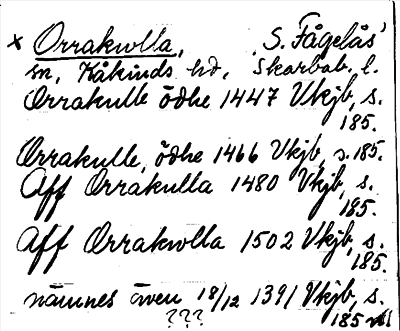 x Orrakulla, S. Fågelås
sn, Kåkinds hd, Skarab. l.
Orrakulle ödhe 1447 Vkjb, s.
185.
Orrakulle, ödhe 1466 Vkjb, s. 185.
Aff Orrakulla 1480 Vkjb, s.
185.
Aff Orrakulla 1502 Vkjb, s.
185.
nämnes även 18/12 1391 Vkjb, s.
??? 185